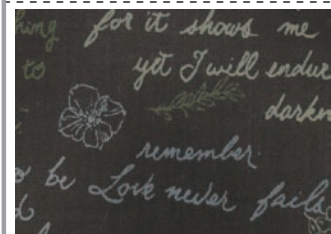 hing for it shows me
to yet I will endur
darkn
remember
o be Love never fails
d